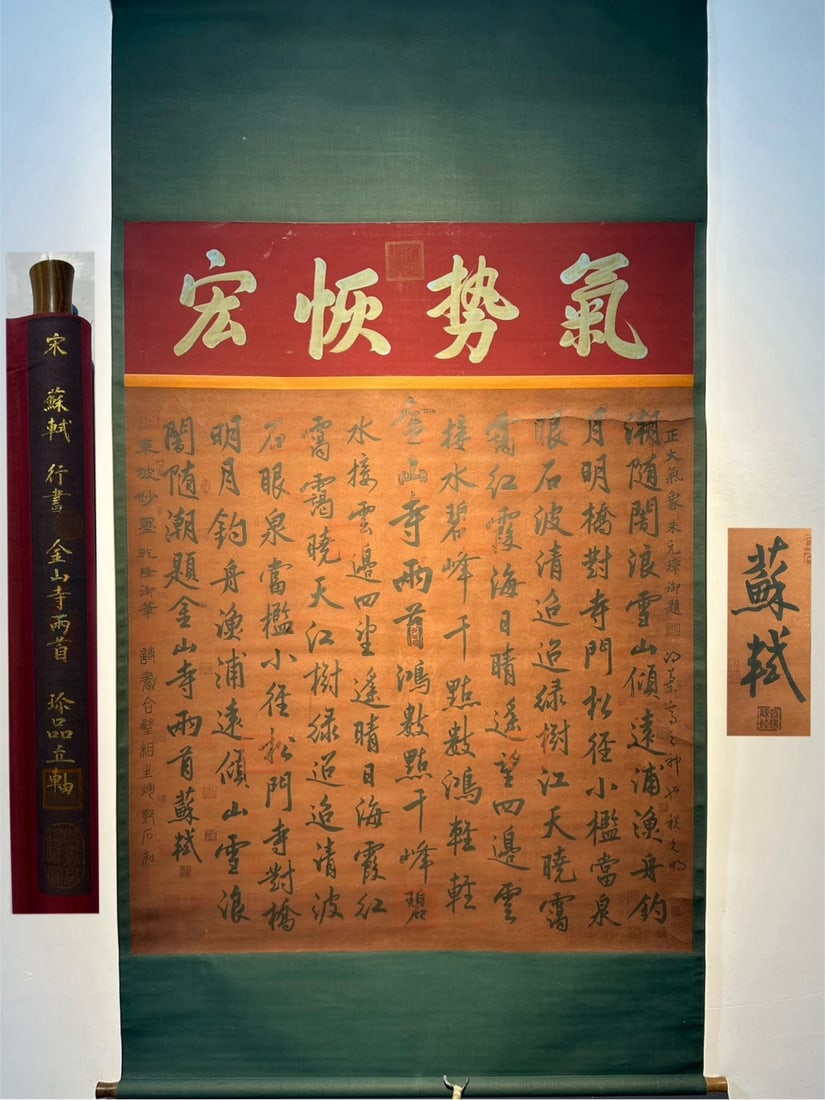 氣势恢宏
正大氣象朱元璋御題
潮随闇浪雪山傾遠浦漁舟釣
月明橋對寺門松徑小檻當泉
眼石波清迢迢绿樹江天曉靄
靄紅霞海日晴遥望四邊雲
接水碧峰千點數鴻軽軽
金山寺兩首鴻數點千峰碧
水接雲邊四望遥晴日海霞紅
靄靄曉天江樹绿迢迢清波
石眼泉當檻小徑松門寺對橋
明月釣舟漁浦遠傾山雪浪
闇随潮題金山寺兩首蘇軾
東坡妙墨乾隆御筆
宋 蘇軾 行書 金山寺兩首 珍品立軸
蘇軾